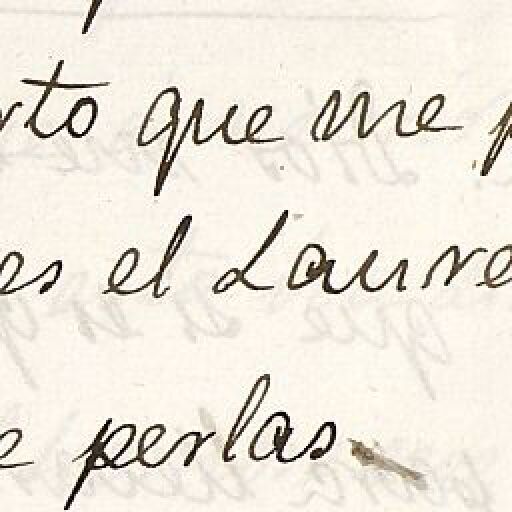 rto que me p
es el Laure
e perlas